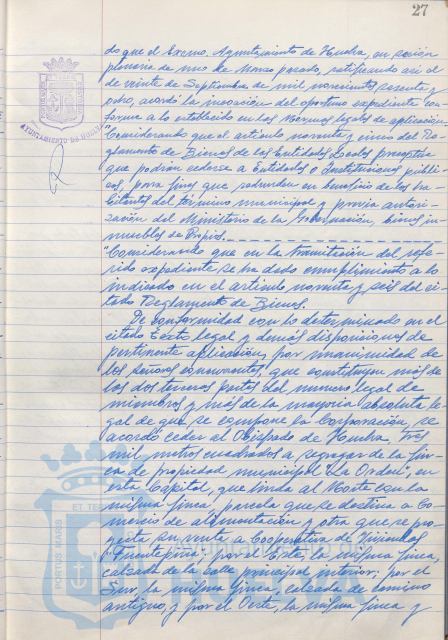 27
do que el Excmo. Ayuntamiento de Huelva, en sesión
plenaria de uno de Marzo pasado, ratificando así el
de veinte de Septiembre de mil novecientos sesenta y
ocho, acordó la incoación del oportuno expediente con
forme a lo establecido en las Normas legales de aplicación.
"Considerando que el artículo noventa y cinco del Re
glamento de Bienes de las Entidades Locales preceptúa
que podrán cederse a Entidades o Instituciones públi
cas, para fines que redunden en beneficio de los ha
bitantes del término municipal y previa autori-
zación del Ministerio de la Gobernación, bienes in
muebles de Propios.
"Considerando que en la tramitación del refe-
rido expediente se ha dado cumplimiento a lo
indicado en el artículo noventa y seis del ci-
tado Reglamento de Bienes.
De conformidad con lo determinado en el
citado Texto legal y demás disposiciones de
pertinente aplicación, por unanimidad de
los señores concurrentes, que constituyen más de
las dos terceras partes del número legal de
miembros y más de la mayoría absoluta le
gal de que se compone la Corporación, se
acordó ceder al Obispado de Huelva, tres
mil metros cuadrados a segregar de la fin-
ca de propiedad municipal "La Orden" en
esta Capital, que linda al Norte con la
misma finca, parcela que se destina a Co-
mercio de alimentación y otra que se pro-
yecta en venta a Cooperativa de Viviendas
"Fuentepiña"; por el Este, la misma finca,
calzada de la calle principal interior; por el
Sur, la misma finca, calzada de camino
antiguo, y por el Oeste, la misma finca y
AYUNTAMIENTO DE HUELVA
PORTUS MARIS
ET TERRAE